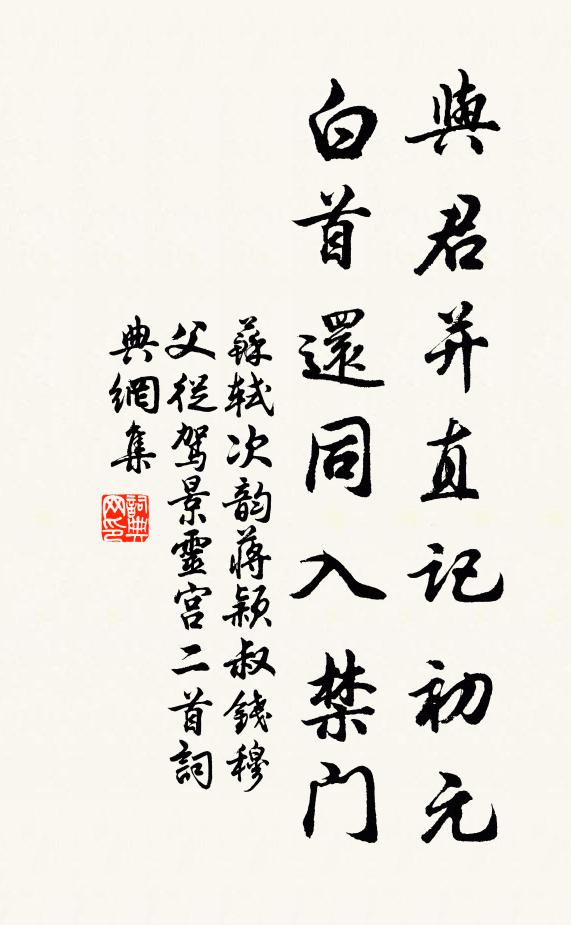 與君并直記初元
白首還同入禁門
蘇軾次韵蔣穎叔錢穆
父從駕景靈宮二首詞
典網集
詞典
网印